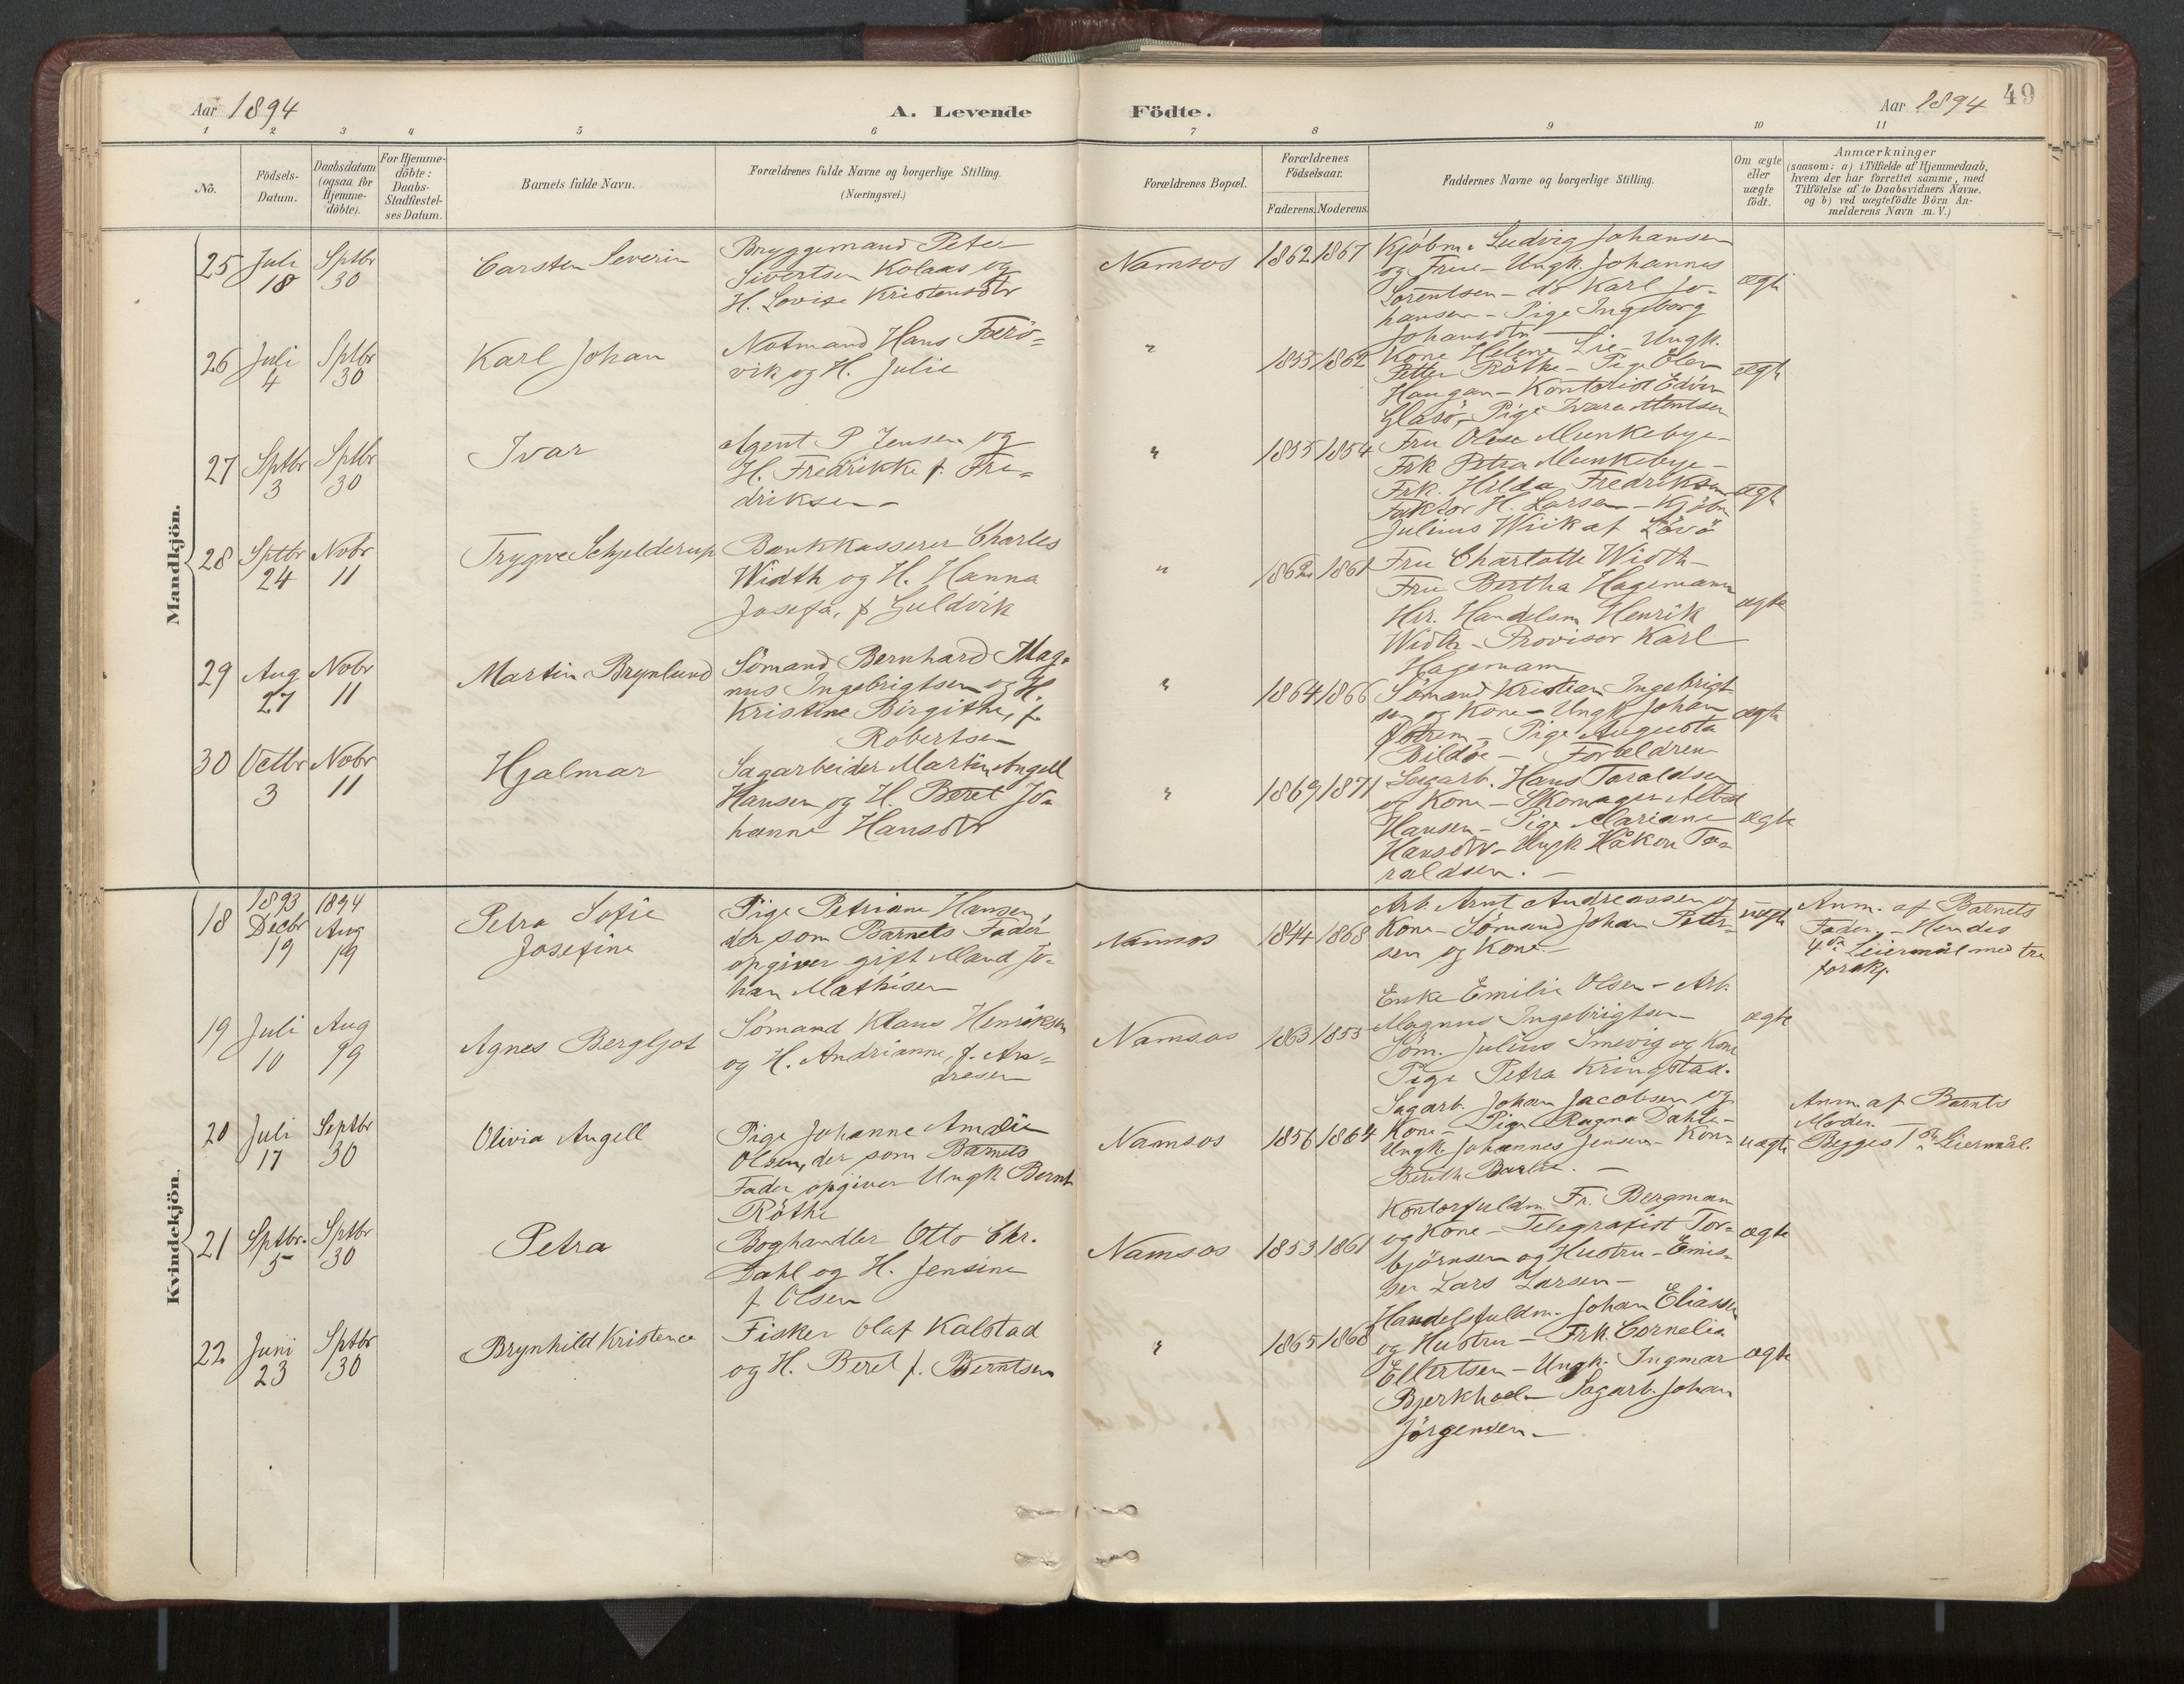 Aar 1894
A. Levende Födte.
Aar 1894
49
1 2 3 4 5 6 7 8 9 10 11
No.
Födsels-Datum.
Daabsdatum (ogsaa for Hjemme-döbte).
For Hjemme-döbte: Daabs-Stadfæstel-ses Datum.
Barnets fulde Navn.
Forældrenes fulde Navne og borgerlige Stilling.
(Næringsvei.)
Forældrenes Bopæl.
Forældrenes Födselsaar.
Faderens. Moderens.
Faddernes Navne og borgerlige Stilling.
Om ægte eller uægte födt.
Anmærkninger
(saasom: a) i Tilfælde af Hjemmedaab,
hvem der har forrettet samme, med
Tilföielse af to Daabsvidners Navne.
og b) ved uægtefödte Börn An-
melderens Navn m. V.)
Mandkjön.
25 Juli 18 Sptbr 30
Carsten Severin
Bryggemand Peter
Sivertsen Kolaas og
H. Lovise Kristensdtr
Namsos 1862 1867
Kjöbm. Ludvig Johansen
og Frue - Ungk. Johannes
Lorentsen - do Karl Jo-
hansen - Pige Ingeborg
Johansdtr
ægte
26 Juli 4 Sptbr 30
Karl Johan
Notmand Hans Færö-
vik og H. Julie
" 1855 1862
Kone Helene Lie - Ungk.
Petter Röthe - Pige Elen
Haugan - Kontorist Edvin
Glasö - Pige Ivara Mentsen
ægte
27 Sptbr 3 Sptbr 30
Ivar
Agent P Jensen og
H. Fredrikke f. Fre-
driksen -
" 1855 1854
Fru Olise Munkebye -
Frk Petra Munkebye -
Frk. Hilda Fredriksen
Faktor H. Larsen - Kjöbm
Julius Wiik af Lövö
ægte
28 Sptbr 24 Nobr 11
Trygve Schjelderup
Bankkasserer Charles
Width og H. Hanna
Josefa, f Guldvik
" 1862 1861
Fru Charlotte Width -
Fru Bertha Hagemann
Hr. Handelsm Henrik
Width - Provisor Karl
Hagemann
ægte
29 Aug 27 Nobr 11
Martin Brynlund
Sömand Bernhard Mag-
nus Ingebrigtsen og H.
Kristine Birgithe, f.
Robertsen
" 1864 1866
Sömand Kristian Ingebrigt-
sen og Kone - Ungk Johan
- Pige Augusta
Bildöe - Forældren
ægte
30 Octbr 3 Nobr 11
Hjalmar
Sagarbeider Martin Angell
Hansen og H. Beret Jo-
hanne Hansdtr
" 1869 1871
Sagarb. Hans Toraldsen
og Kone - Skomager Albert
Hansen - Pige Mariane
Hansdtr - Ungk Håkon To-
raldsen. -
ægte
Kvindekjön.
18 1893 Decbr 19 1894 Aug 19
Petra Sofie
Josefine
Pige Petriane Hansen,
der som Barnets Fader
opgiver gift Mand Jo-
han Mathisen
Namsos 1844 1868
Arb. Arnt Andreassen og
Kone - Sömand Johan Peter-
sen og Kone -
uægte
Anm. af Barnets
Fader. - Hendes
4de Leiermål med tre
forskj.
19 Juli 10 Aug 19
Agnes Bergljot
Sömand Klaus Henriksen
og H. Andrianne, f. An-
dresen
Namsos 1863 1855
Enke Emilie Olsen - Arb.
Magnus Ingebrigtsen -
Söm. Julius Smevig og Kone
Pige Petra Kringstad.
ægte
20 Juli 17 Septbr 30
Olivia Angell
Pige Johanne Amalie
Olsen, der som Barnets
Fader opgiver Ungk Bernt
Röthe
Namsos 1856 1864
Sagarb. Johan Jacobsen og
Kone - Pige Ragna Dahle -
Ungk. Johannes Jensen - Kone
Bereth . -
uægte
Anm. af Barnets
Moder. -
Begges 1ste Leiermål.
21 Sptbr. 5 Sptbr 30
Petra
Boghandler Otto Chr.
Dahl og H. Jensine
f Olsen
Namsos 1853 1861
Kontorfuldm. Fr. Bergman
og Kone - Telegrafist Tor-
björnsen og Hustru - Emis-
sær Lars Larsen -
ægte
22 Juni 23 Sptbr 30
Brynhild Kristence
Fisker Olaf Kalstad
og H. Beret f. Berntsen
" 1865 1868
Handelsfuldm. Johan Eliassen
og Hustru - Frk. Cornelia
Ellertsen - Ungk. Ingmar
Bjerkhoel - Sagarb. Johan
Jörgensen. -
ægte